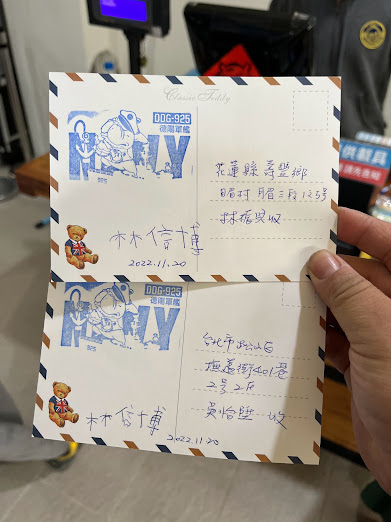 Classic Teddy
DDG-925
德陽軍艦
NAVY
925
花蓮縣壽豐鄉
月眉村 月眉三段125號
林信博
2022.11.20
DDG-925
德陽軍艦
NAVY
925
台北市松山區
撫遠街401巷
2号2F
吳怡 收
林信博
2022.11.20